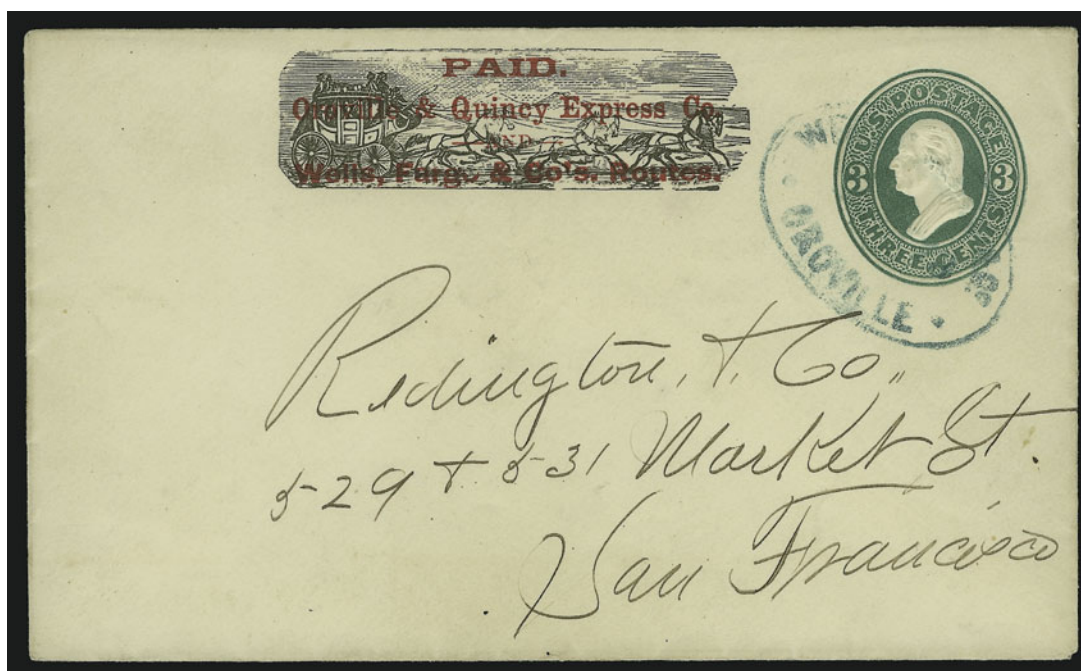 PAID.
Oroville & Quincy Express Co.
— AND —
Wells, Fargo & Co's. Routes.
U.S. POSTAGE
3 3
THREE CENTS
OROVILLE
Redington, & Co,,
529 & 531 Market St.
San Francisco